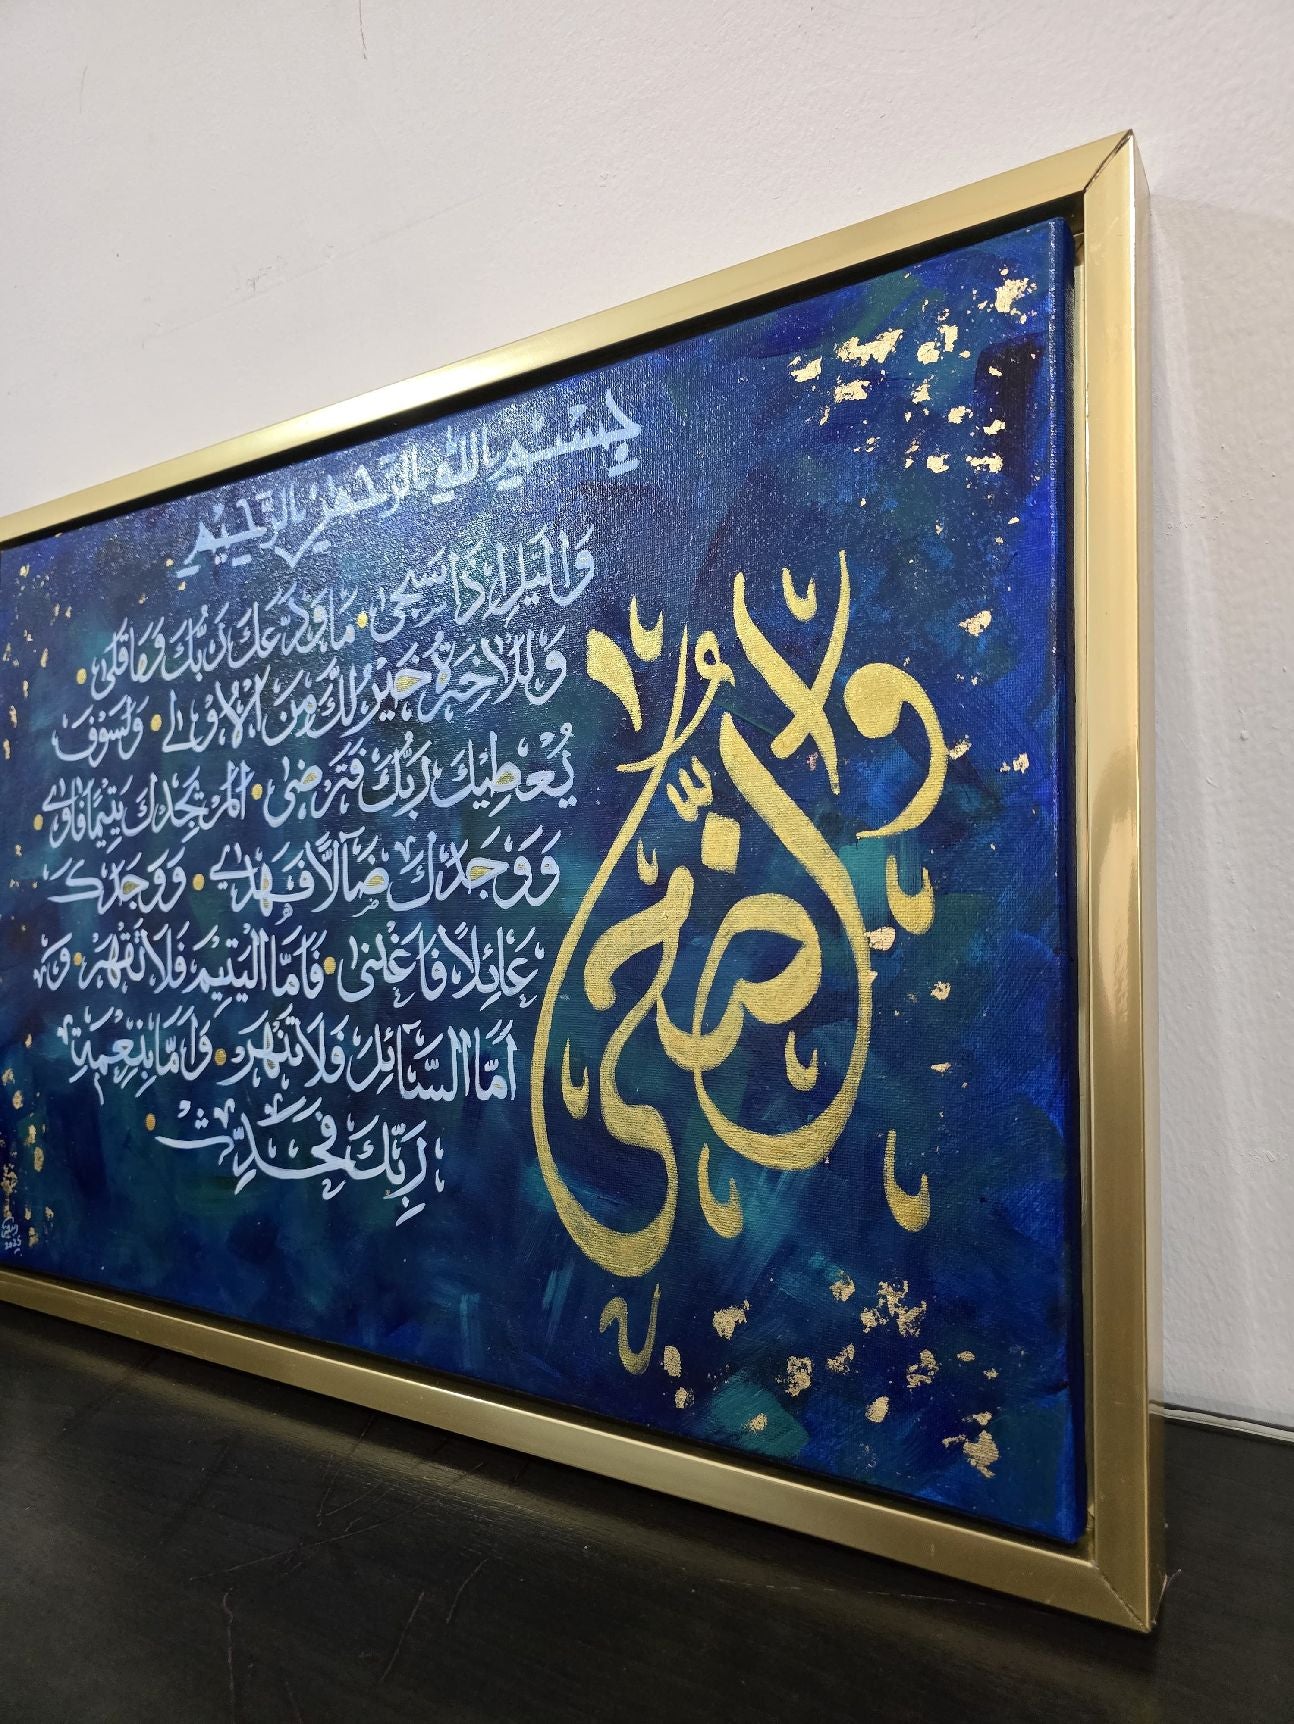 والضحى
بسم الله الرحمن الرحيم
وَالَّيلِ اِذَا سَجىٰ • مَا وَدَّعَكَ رَبُّكَ وَمَا قَلىٰ •
وَلَلْاٰخِرَةُ خَيْرٌ لَّكَ مِنَ الْاُوْلٰى • وَلَسَوْفَ
يُعْطِيْكَ رَبُّكَ فَتَرْضٰى • اَلَمْ يَجِدْكَ يَتِيْمًا فَاٰوٰى •
وَوَجَدَكَ ضَآلًّا فَهَدٰى • وَوَجَدَكَ
عَائِلًا فَاَغْنىٰ • فَاَمَّا الْيَتِيْمَ فَلَا تَقْهَرْ • وَ
اَمَّا السَّآئِلَ فَلَا تَنْهَرْ • وَاَمَّا بِنِعْمَةِ
رَبِّكَ فَحَدِّثْ •
2025